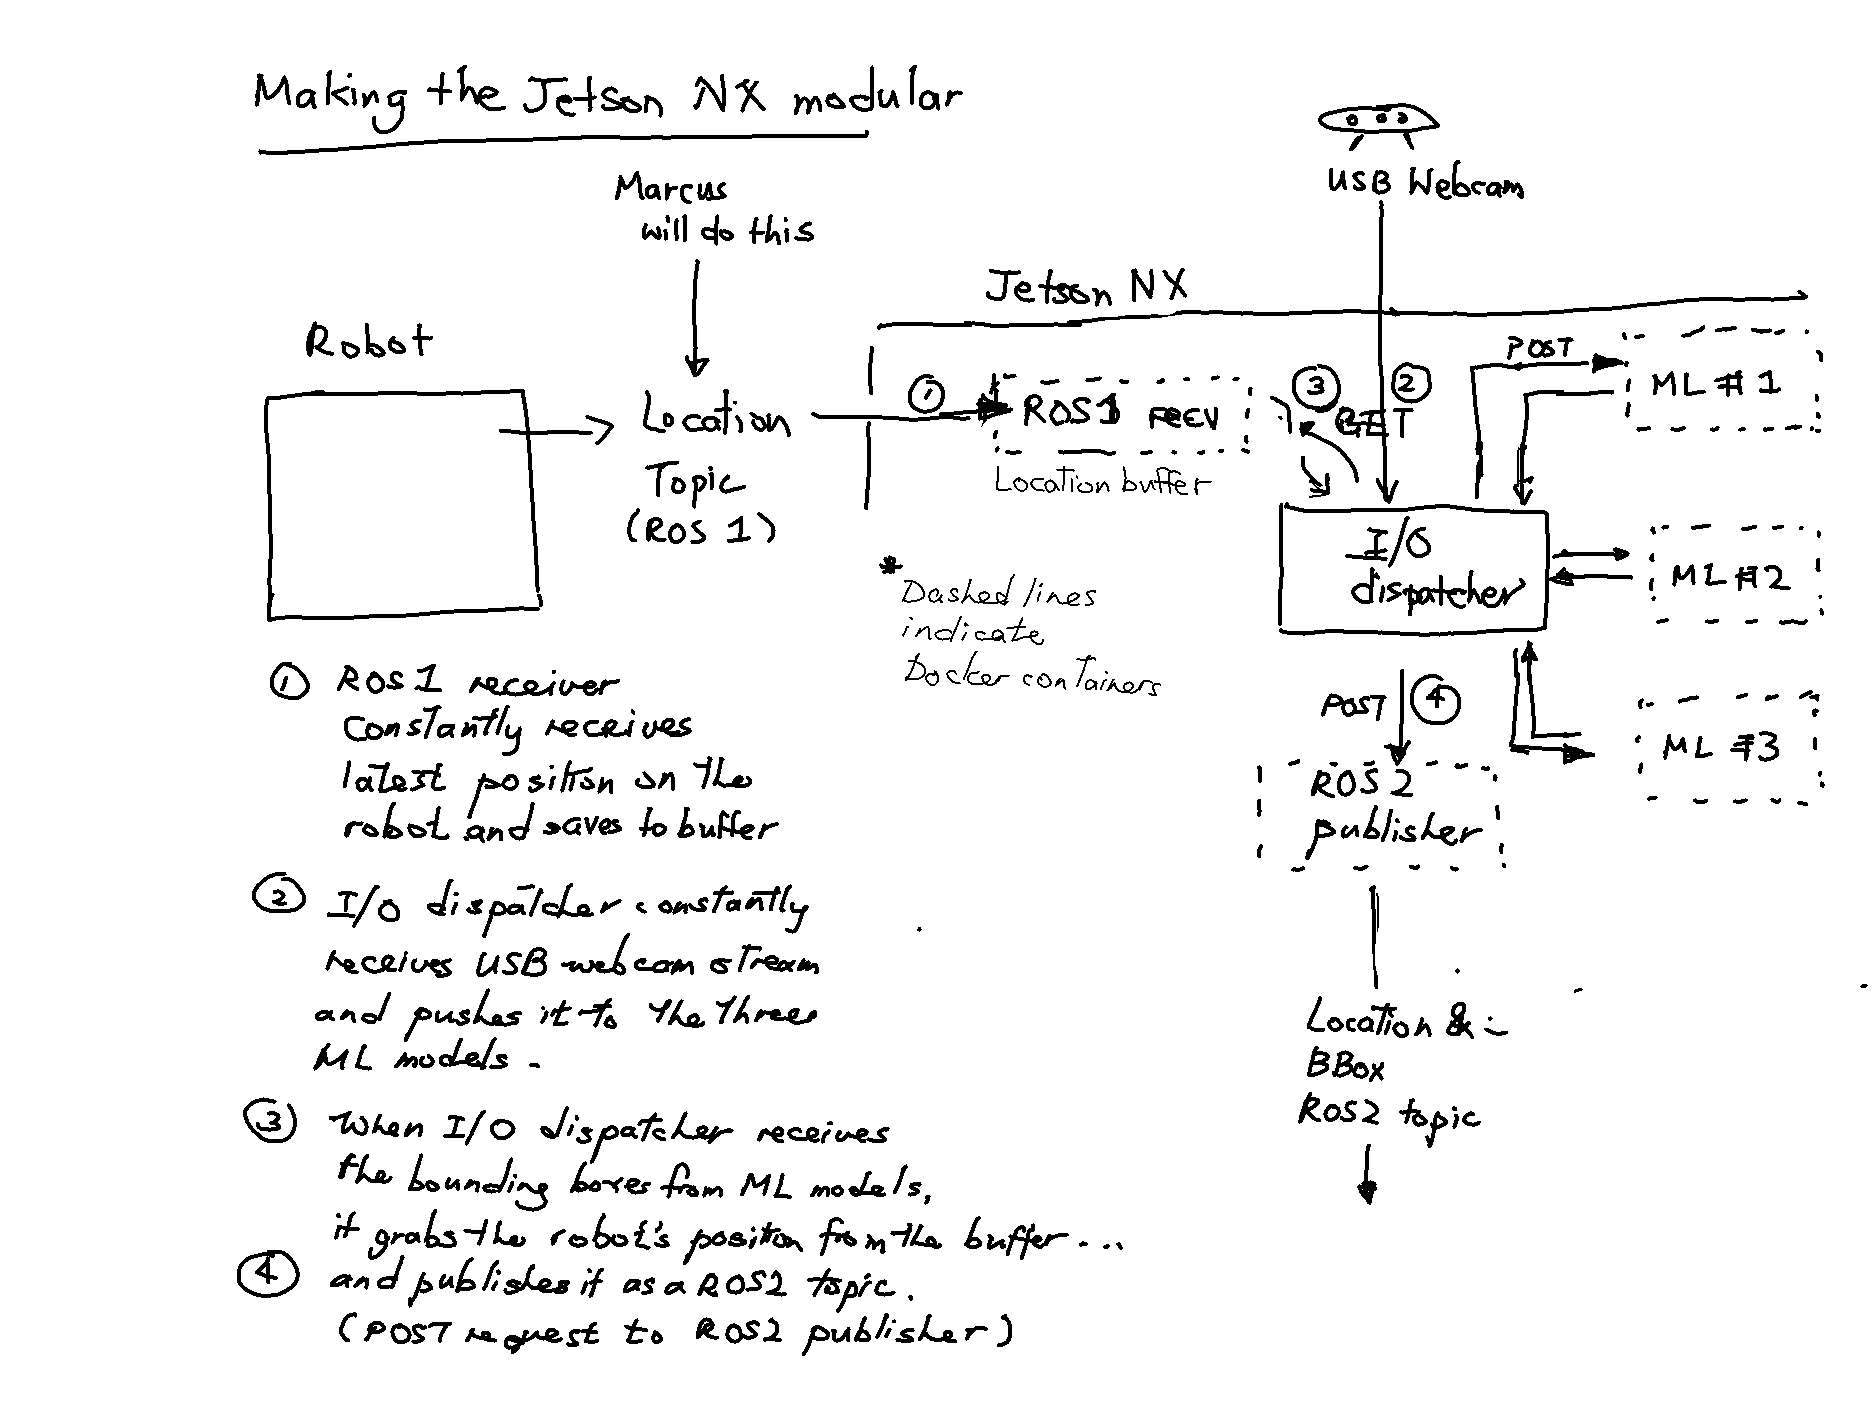 Making the Jetson NX modular
Marcus
will do this
USB Webcam
Jetson NX
Robot
Location
Topic
(ROS 1)
1
ROS1 recv
Location buffer
3
2
GET
POST
ML #1
I/O
dispatcher
ML #2
* Dashed lines
indicate
Docker containers
POST
4
ML #3
ROS2
publisher
Location &
BBox
ROS2 topic
1 ROS1 receiver
constantly receives
latest position on the
robot and saves to buffer
2 I/O dispatcher constantly
receives USB webcam stream
and pushes it to the three
ML models.
3 When I/O dispatcher receives
the bounding boxes from ML models,
it grabs the robot's position from the buffer...
4 and publishes it as a ROS2 topic.
(POST request to ROS2 publisher)